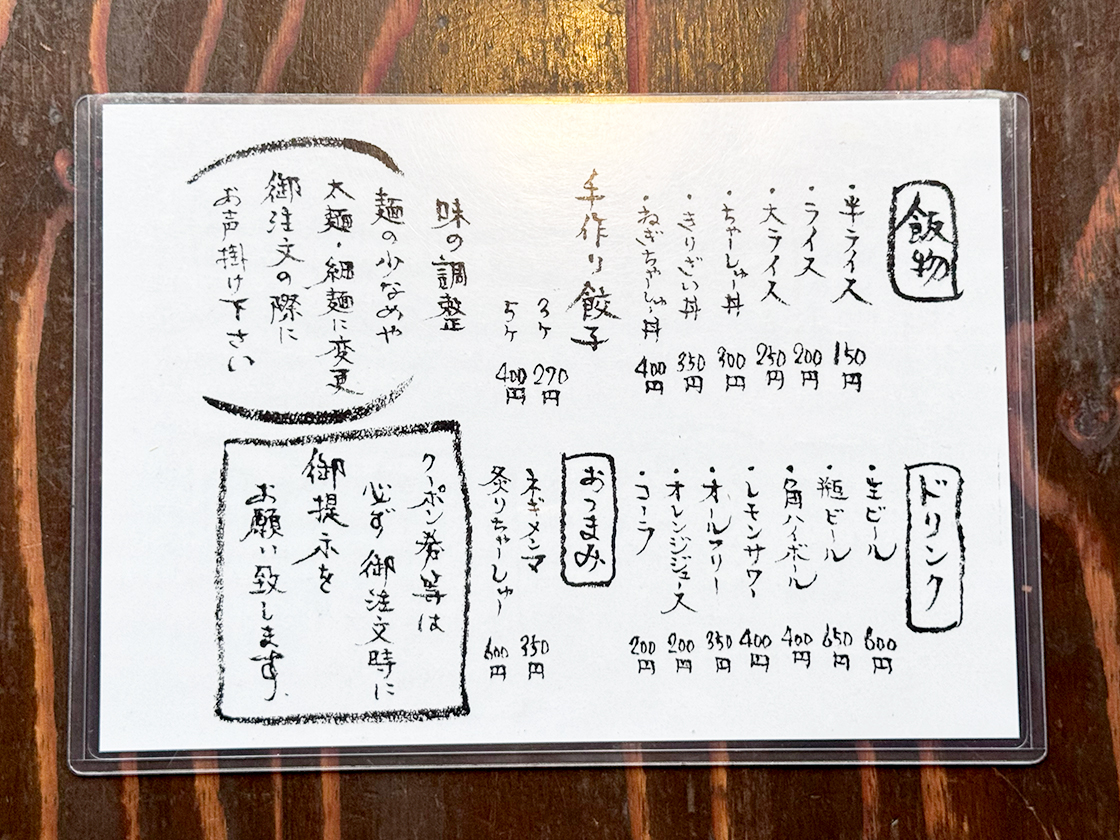 飯物
・半ライス 150円
・ライス 200円
・大ライス 250円
・ちゃーしゅー丼 300円
・きりざい丼 350円
・ねぎちゃーしゅー丼 400円
手作り餃子
3ヶ 270円
5ヶ 400円
味の調整
麺の少なめや
太麺・細麺に変更
御注文の際に
お声掛け下さい
ドリンク
・生ビール 600円
・瓶ビール 650円
・角ハイボール 400円
・レモンサワー 400円
・オールフリー 350円
・オレンジジュース 200円
・コーラ 200円
おつまみ
ネギメンマ 350円
炙りちゃーしゅー 600円
クーポン券等は
必ず御注文時に
御提示を
お願い致します。